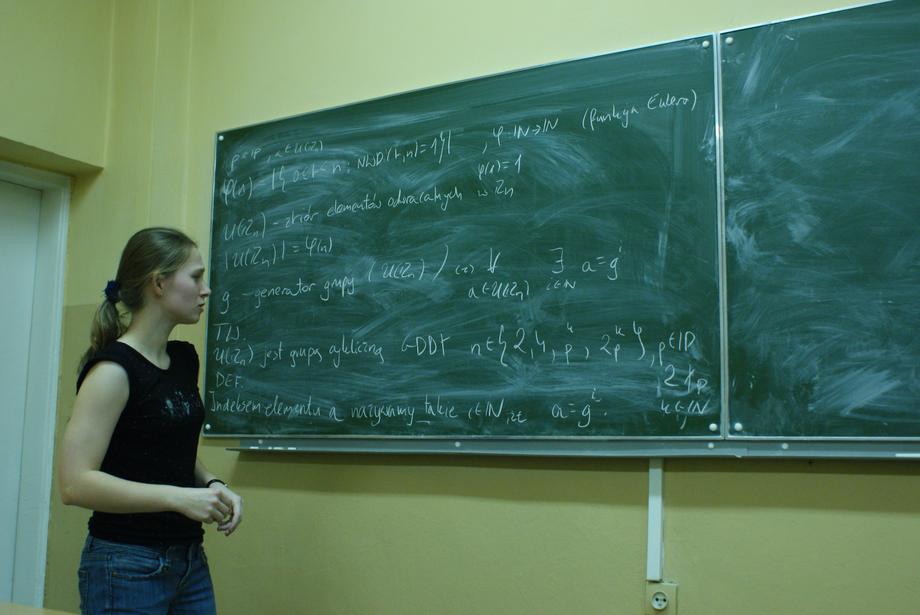 p ∈ P, a ∈ U(Z)
φ(n) = |{ 0 ≤ k < n : NWD(k,n) = 1 }|, φ: IN → IN (funkcja Eulera)
φ(1) = 1
U(Zn) - zbiór elementów odwracalnych w Zn
|U(Zn)| = φ(n)
g - generator grupy (U(Zn)) ∀ a∈U(Zn) ∃ i∈IN a = g^i
TW.
U(Zn) jest grupą cykliczną GDDY n ∈ { 2, 4, p^k, 2p^k }, p ∈ IP
2 ∤ p
k ∈ IN
DEF.
Indeksem elementu a nazywamy takie i ∈ IN, że a = g^i.